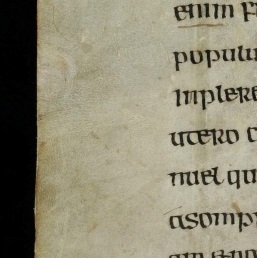 enim
populu
inplere
utero
nuel qu
asomp